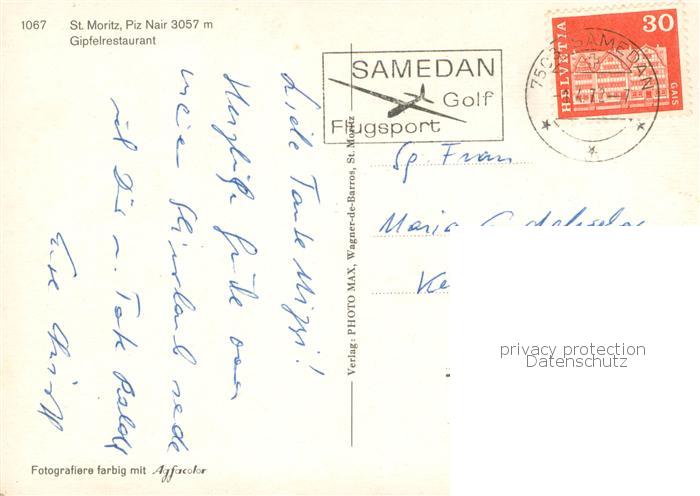 1067 St. Moritz, Piz Nair 3057 m
Gipfelrestaurant
SAMEDAN
Golf
Flugsport
HELVETIA
30
GAIS
7503 SAMEDAN
Liebe Tante Mizzi!
Herzliche Grüße von
meinem
Dir u. Tante
Verlag: PHOTO MAX, Wagner-de-Barros, St. Moritz
Sg. Frau
Maria
privacy protection
Datenschutz
Fotografiere farbig mit Agfacolor